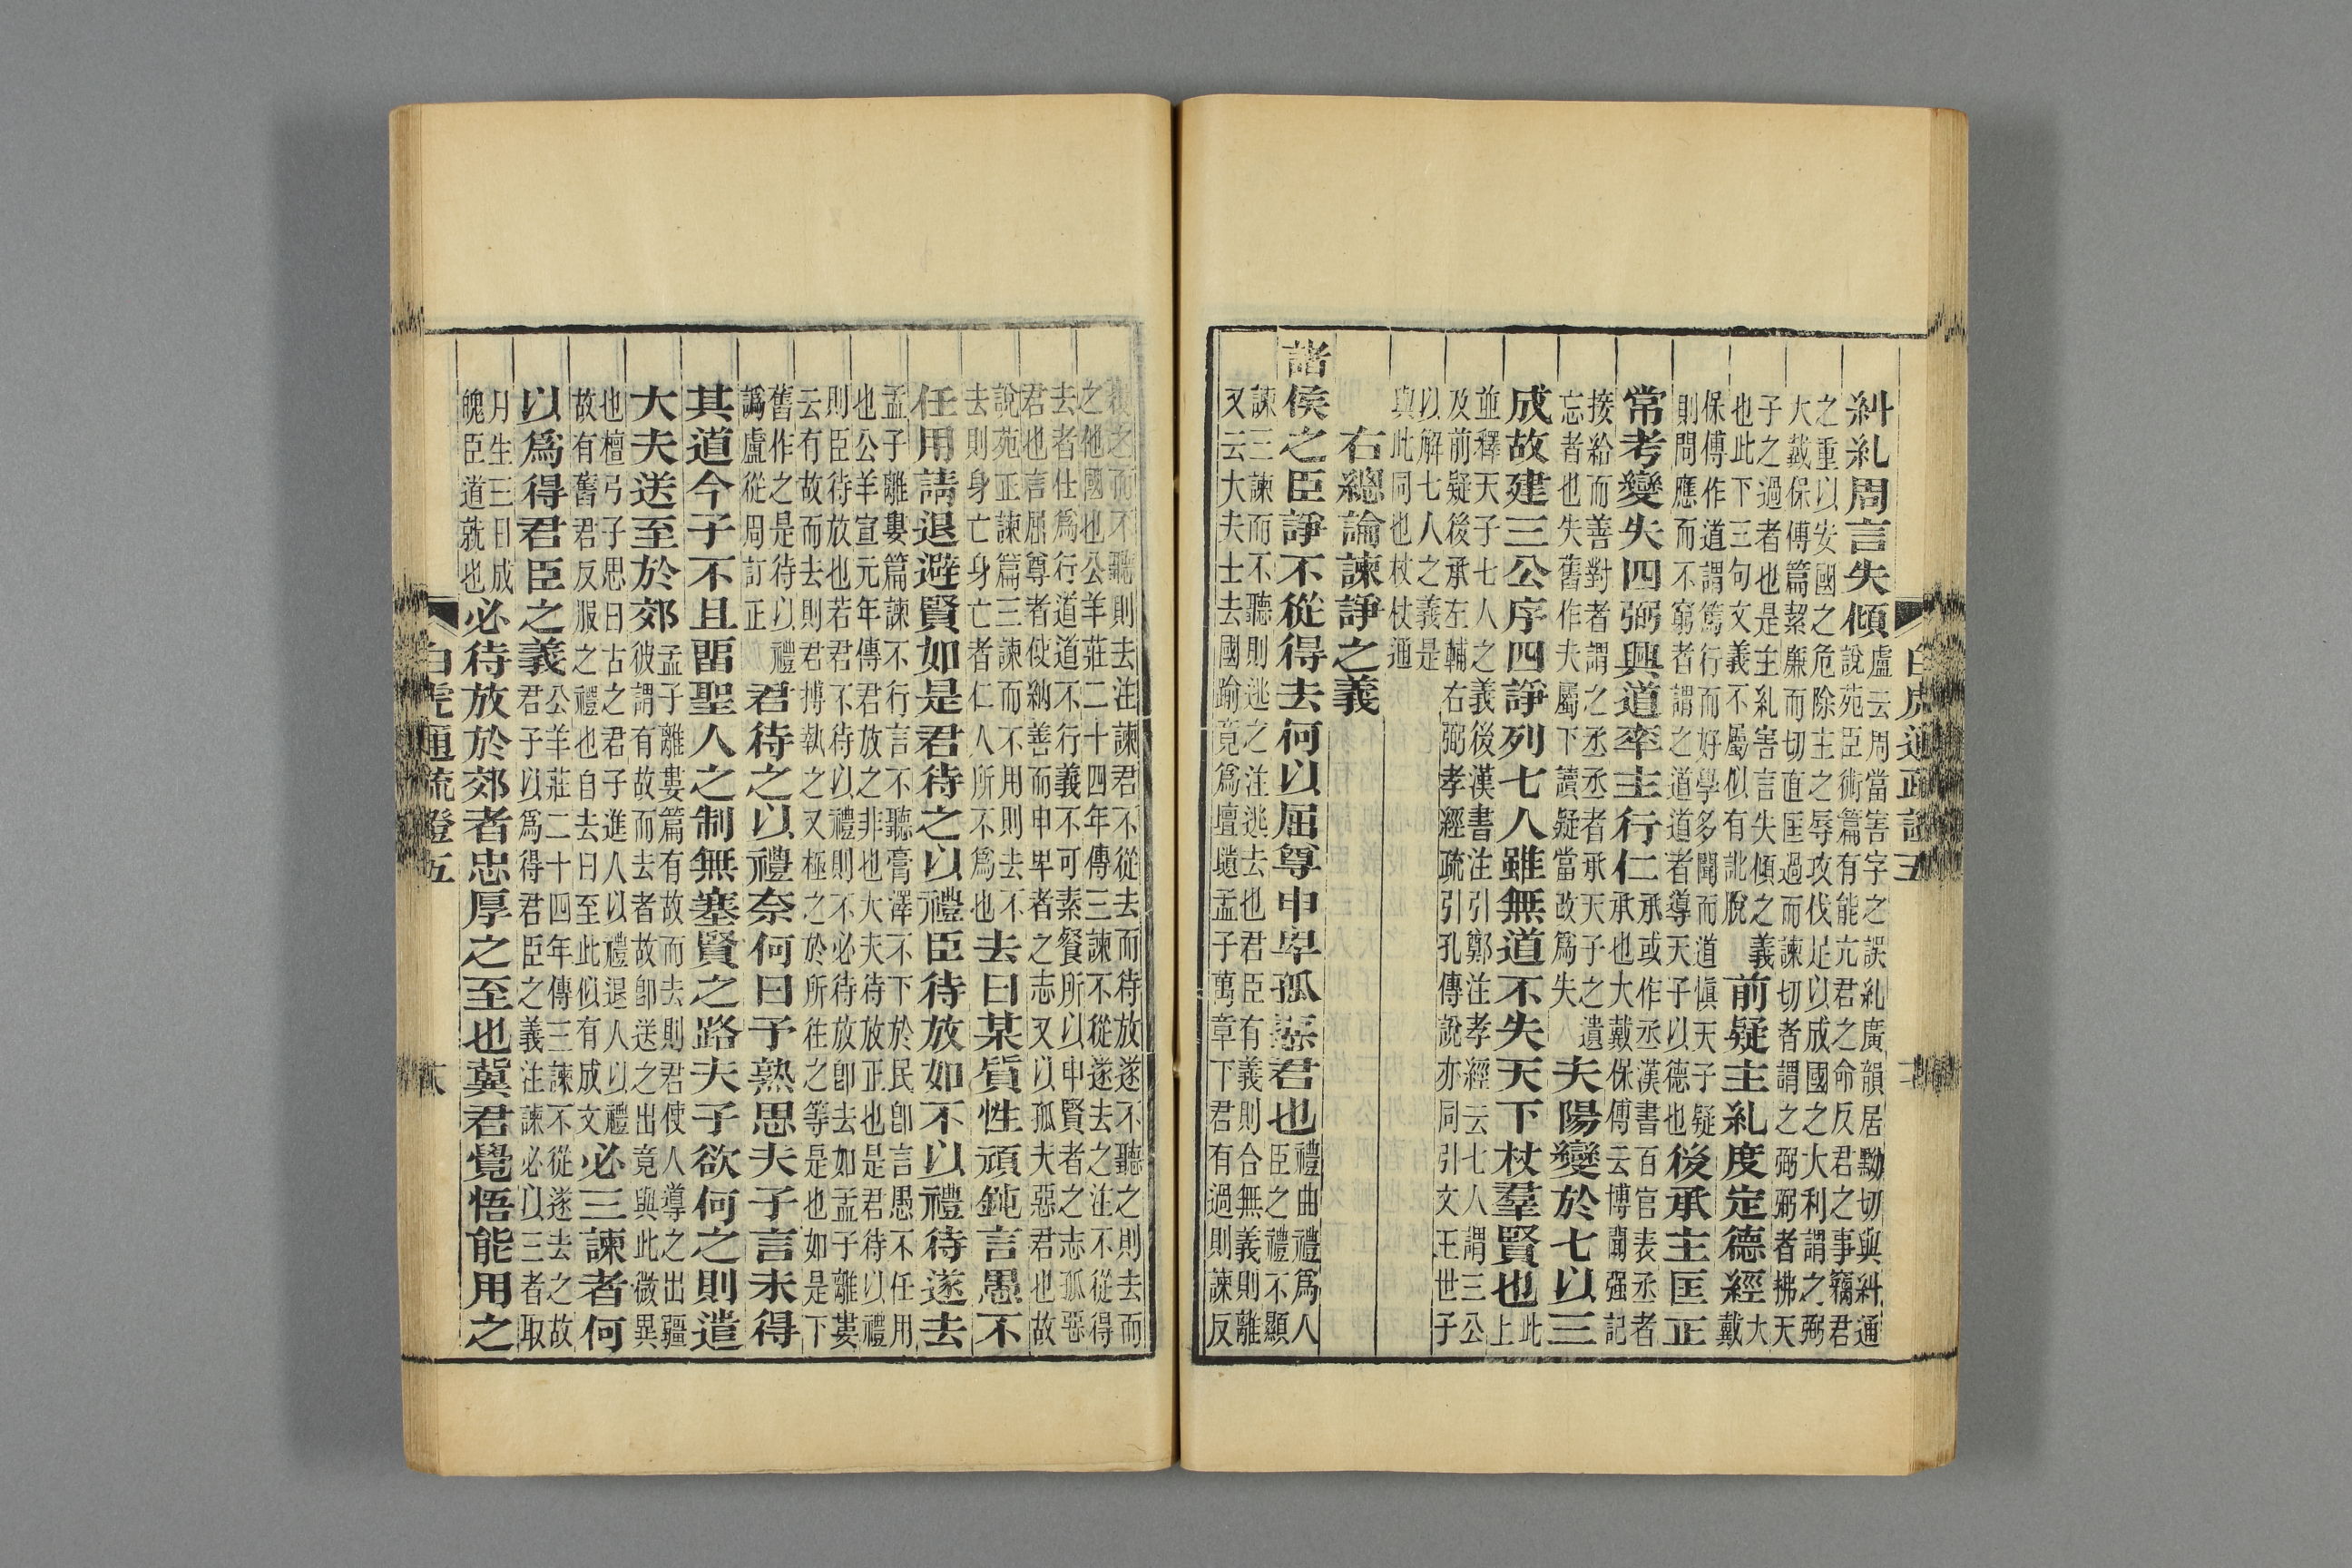 白虎通疏證五
糾糺周言失傾盧云周當害字之誤糺廣韻居黝切與糾通
說苑臣術篇有能亢君之命反君之事竊君
之重以安國之危除主之辱攻伐足以成國之大利謂之弼
大戴保傅篇絜廉而切直匡過而諫切者謂之弼弼者拂天
子之過者也是主糺害言失傾之義
也此下三句文義不屬似有訛脫前疑主糺度定德經大
戴
保傅作道謂篤行而好學多聞而道慎天子疑
則問應而不窮者謂之道道者導天子以德也後承主匡正
常考變失四弼興道率主行仁承或作丞漢書百官表丞者
承也大戴保傅云博聞强記
接給而善對者謂之丞丞者承天子之遺
忘者也失舊作夫屬下讀疑當改爲失夫陽變於七以三
成故建三公序四諍列七人雖無道不失天下杖羣賢也此
上
並釋天子七人之義後漢書注引鄭注孝經云七人謂三公
及前疑後承左輔右弼孝經疏引孔傳說亦同引文王世子
以解七人之義是
與此同也杖杖通
右總論諫諍之義
諸侯之臣諍不從得去何以屈尊申卑孤惡君也禮曲禮爲人
臣之禮不顯
諫三諫而不聽則逃之注逃去也君臣有義則合無義則離
又云大夫士去國踰竟爲壇墠孟子萬章下君有過則諫反
覆之而不聽則去注諫君不從去而待放遂不聽之則去而
之他國也公羊莊二十四年傳三諫不從遂去之注不從得
去者仕爲行道道不行義不可素餐所以申賢者之志孤惡
君也言屈尊者使納善而申卑者之志又以孤夫惡君也故
說苑正諫篇三諫而不用則去不
去則身亡身亡者仁人所不爲也去曰某質性頑鈍言愚不
任用請退避賢如是君待之以禮臣待放如不以禮待遂去
孟子離婁篇諫不行言不聽膏澤不下於民卽言愚不任用
也公羊宣元年傳君放之非也大夫待放正也是君待以禮
則臣待放也若君不待以禮則不必待放卽去如孟子離婁
云有故而去則君搏執之又極之於所往之等是也如是下
舊作之是待以禮
譌盧從周訂正君待之以禮奈何曰予熟思夫子言未得
其道今子不且畱聖人之制無塞賢之路夫子欲何之則遣
大夫送至於郊孟子離婁篇有故而去則君使人導之出疆
彼謂有故而去者故卽送之出竟與此微異
也檀弓子思曰古之君子進人以禮退人以禮
故有舊君反服之禮也自去曰至此似有成文必三諫者何
以爲得君臣之義公羊莊二十四年傳三諫不從遂去之故
君子以爲得君臣之義注諫必以三者取
月生三日成
魄臣道就也必待放於郊者忠厚之至也冀君覺悟能用之
白虎通疏證五